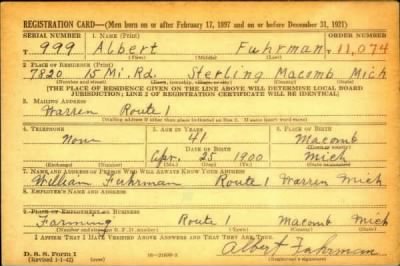 REGISTRATION CARD—(Men born on or after February 17, 1897 and on or before December 31, 1921)
SERIAL NUMBER 1. NAME (Print) ORDER NUMBER
T 999 Albert Fuhrman 11,074
(First) (Middle) (Last)
2. PLACE OF RESIDENCE (Print)
7820 15 Mi. Rd. Sterling Macomb Mich
(Number and street) (Town, township, village, or city) (County) (State)
[THE PLACE OF RESIDENCE GIVEN ON THE LINE ABOVE WILL DETERMINE LOCAL BOARD
JURISDICTION; LINE 2 OF REGISTRATION CERTIFICATE WILL BE IDENTICAL]
3. MAILING ADDRESS
Warren Route 1
[Mailing address if other than place indicated on line 2. If same insert word same]
4. TELEPHONE 5. AGE IN YEARS 6. PLACE OF BIRTH
None 41 Macomb
DATE OF BIRTH (Town or county)
Apr. 25 1900 Mich
(Exchange) (Number) (Mo.) (Day) (Yr.) (State or country)
7. NAME AND ADDRESS OF PERSON WHO WILL ALWAYS KNOW YOUR ADDRESS
William Fuhrman Route 1 Warren Mich
8. EMPLOYER'S NAME AND ADDRESS
9. PLACE OF EMPLOYMENT OR BUSINESS
Farming Route 1 Macomb Mich
(Number and street or R. F. D. number) (Town) (County) (State)
I AFFIRM THAT I HAVE VERIFIED ABOVE ANSWERS AND THAT THEY ARE TRUE.
D. S. S. Form 1
(Revised 1-1-42) 16—21630-2 Albert Fuhrman